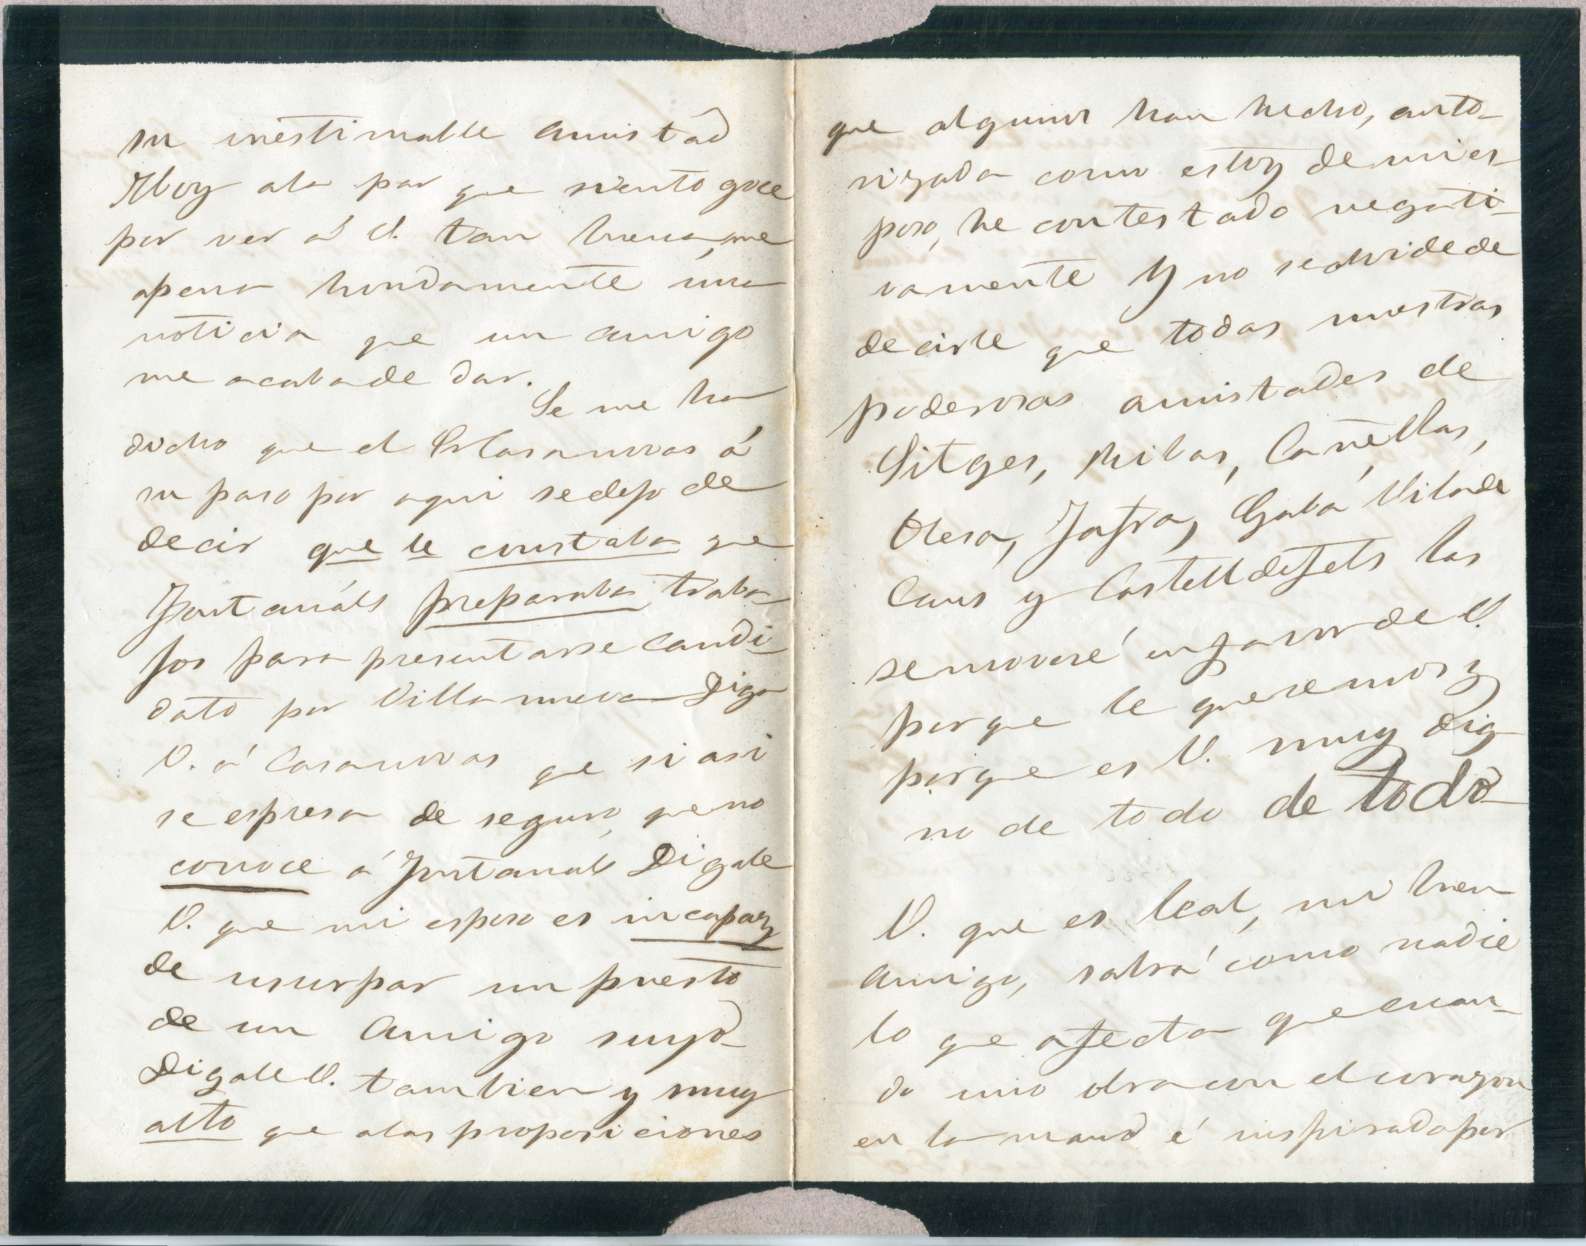 su inestimable amistad
Hoy ala par que siento goce
por ver á V. tan buena, me
apena hondamente una
noticia que un amigo
me acabade dar.
Se me ha
dicho que el Casanovas á
su paso por aqui sedejo de
decir que le constaba que
Fontanáls preparaba traba-
jos para presentarse candi-
dato por Villanueva Diga
V. á Casanovas que si asi
se espresa de seguro, que no
conoce á Fontanals Digale
V. que mi esposo es incapaz
de usurpar un puesto
de un amigo suyo
Digale V. tambien y muy
alto que alas proposiciones
que algunos han hecho, auto-
rizada como estoy de mi es-
poso, he contestado negati-
vamente Y no seolvidede
decirle que todas nuestras
poderosas amistades de
Sitges, Ribas, Cañellas,
Olesa, Jafra, Gabá Vilade
Cans y Castelldefels las
semoveré enfavorde V.
porque le queremos y
porque es V. muy dig-
no de todo de todo
V. que es leal, mi buen
amigo, sabrá como nadie
lo que afecta que cuan-
do uno obracon el corazon
en la mano é inspiradopor